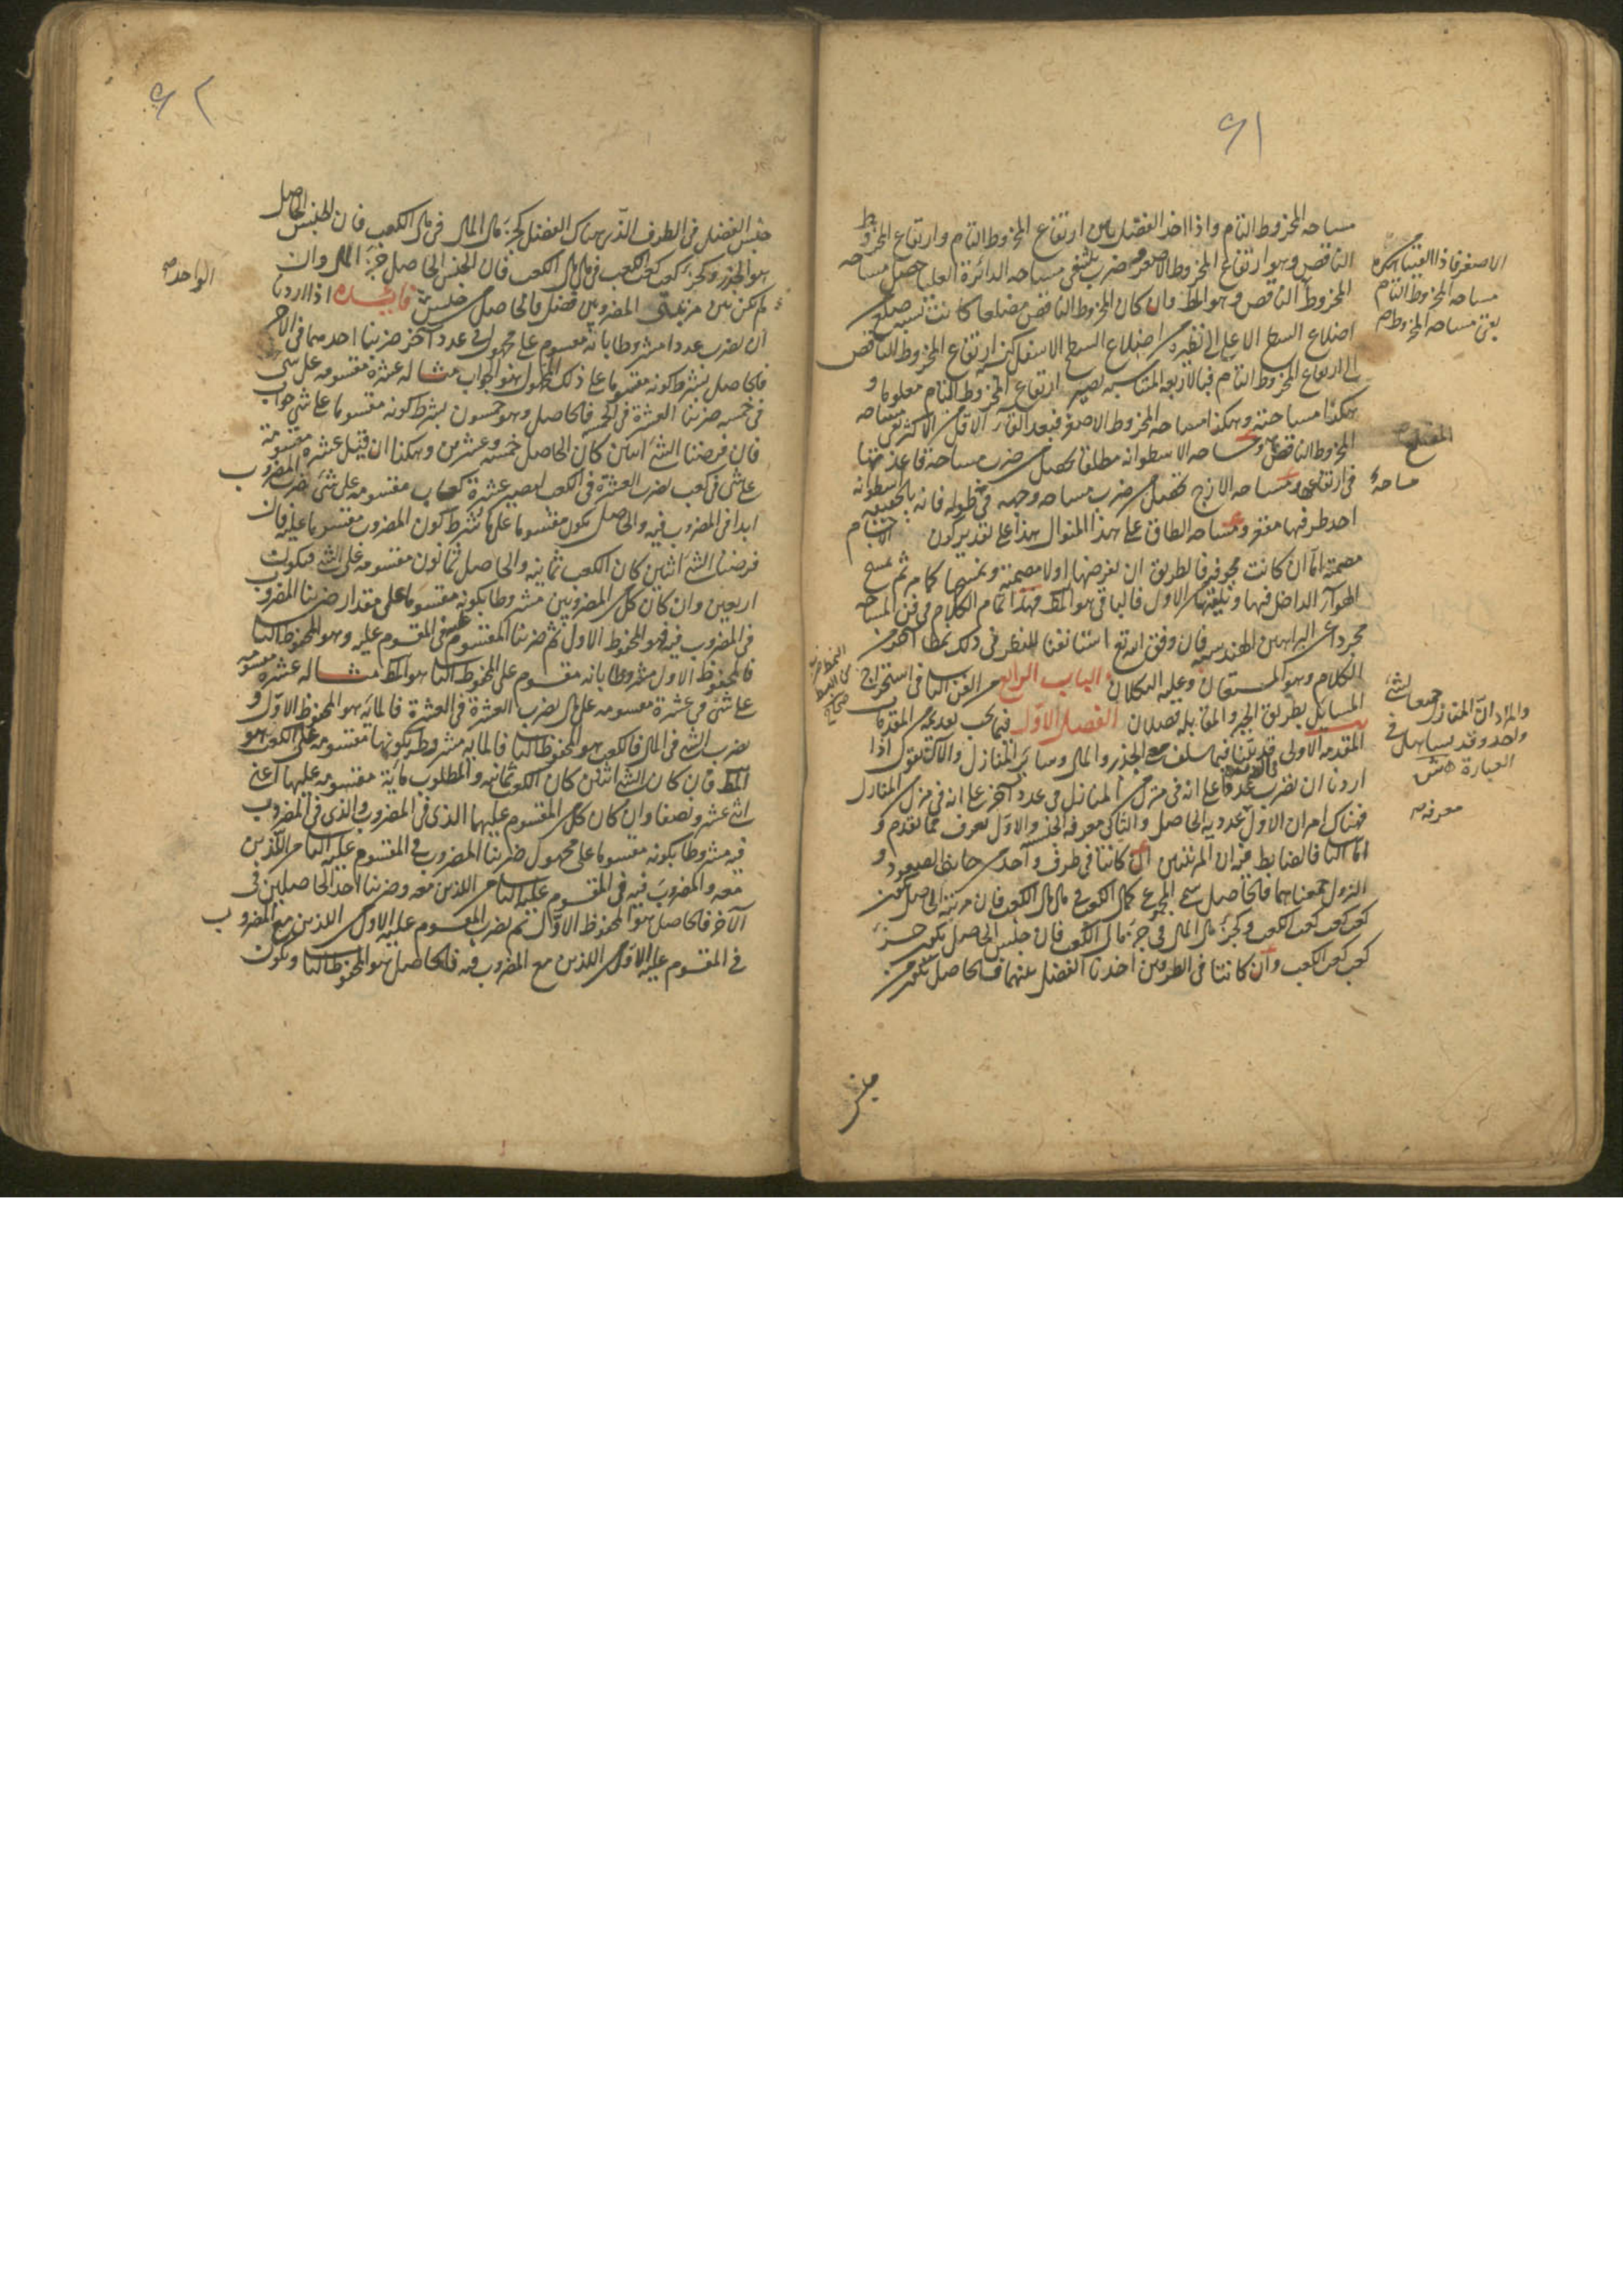 ٦١
مساحه المخروط التام واذا اخذ الفضل بين ارتفاع المخروط التام وارتفاع المخروط
الناقص وهو ارتفاع المخروط الاصغر وضرب ثلثه في مساحه الدائرة العليا حصل مساحه
المخروط الناقص وهو المط وان كان المخروط الناقص مضلعا كانت نسبه ضلع من
اضلاع السطح الاعلى الى نظيره من اضلاع السطح الاسفل كنسبه ارتفاع المخروط الناقص
الى ارتفاع المخروط التام فبالاربعه المتناسبه يصير ارتفاع المخروط التام معلوما و
هكذا مساحته وهكذا مساحه المخروط الاصغر فبعد القاء الاقل من الاكثر يبقى مساحه
المخروط الناقص ومساحه الاسطوانه مطلقا تحصل من ضرب مساحة قاعدتها
في ارتفاعها ومساحه الازج تحصل من ضرب مساحه وجهه في طوله فانه بالحقيقه اسطوانه
احد طرفيها مقعر ومساحه الطاق على هذا المنوال هذا على تقدير كون الاجسام
مصمته اما ان كانت مجوفه فالطريق ان نفرضها اولا مصمته ونمسحها كما مر ثم نمسح
الهواء الداخل فيها ونلقيه من الاول فالباقى هو المط فهذا تمام الكلام في فن المساحه
مجردا عن البراهين الهندسيه فان وفق الله تع استانفنا للنظر في ذلك نمطا اخر من
الكلام وهو المستعان وعليه التكلان الباب الرابع من الفن الثانى في استخراج
المسايل بطريق الجبر والمقابله فصلان الفصل الاول فيما يجب تقديمه من المقدمات
المقدمه الاولى قد بينا فيما سلف معنى الجذر والمال وساير المنازل والآن نقول اذا
اردنا ان نضرب عددا على انه في منزل من المنازل في عدد آخر على انه في منزل من المنازل
فهناك امران الاول عدديه الحاصل والثانى معرفه الجنس والاول يعرف مما تقدم و
اما الثانى فالضابط فيه ان المرتبتين ان كانتا في طرف واحد من جانبى الصعود و
النزول جمعناهما فالحاصل سمى المجموع كمال الكعب في مال مال الكعب فان مرتبه الحاصل تكون
كعب كعب كعب الكعب وكجزء مال المال في جزء مال الكعب فان جنس الحاصل يكون جزء
كعب كعب الكعب وان كانتا في الطرفين اخذنا الفضل بينهما فالحاصل يكون من
جنس
الاصغر فاذا القيناه من
مساحه المخروط التام
بقى مساحه المخروط
المضلع
مساحه
والمراد ان المنازل جمعا لشئ
واحد وقد تساهل في
العبارة
معرفه
٦٢
جنس الفضل في الطرف الذى هناك الفضل كجزء مال المال في مال الكعب فان الجنس الحاصل
هو الجذر وكجزء كعب كعب الكعب في مال مال الكعب فان الجنس الحاصل جزء المال وان
لم يكن بين مرتبتى المضروبين فضل فالحاصل من جنس فائده اذا اردنا
ان نضرب عددا مشروطا بانه مقسوم على مجهول في عدد آخر ضربنا احدهما في الآخر
فالحاصل بشرط كونه مقسوما على ذلك المجهول هو الجواب مثاله عشرة مقسومه على شئ
في خمسه ضربنا العشرة في الخمسه فالحاصل وهو خمسون بشرط كونه مقسوما على شئ جواب
فان فرضنا الشئ اثنين كان الحاصل خمسه وعشرين وهكذا ان قيل عشره مقسومة
على شئ في كعب نضرب العشرة في الكعب ليصير عشرة كعاب مقسومه على شئ نضرب المضروب
ابدا في المضروب فيه والحاصل يكون مقسوما على ما شرط كون المضروب مقسوما عليه فان
فرضنا الشئ اثنين كان الكعب ثمانيه والحاصل ثمانون مقسومه على الشئ فيكون
اربعين وان كان كل من المضروبين مشروطا بكونه مقسوما على مقدار ضربنا المضروب
في المضروب فيه فهو المحفوظ الاول ثم ضربنا المقسوم عليه في المقسوم عليه وهو المحفوظ الثانى
فالمحفوظ الاول مشروطا بانه مقسوم على المحفوظ الثانى هو المط مثاله عشرة مقسومه
على شئ في عشرة مقسومه على مال نضرب العشرة في العشرة فالمائه هو المحفوظ الاول و
نضرب الشئ في المال فالكعب هو المحفوظ الثانى فالمايه مشروطه بكونها مقسومه على الكعب هو
المط فان كان الشئ اثنين كان الكعب ثمانيه والمطلوب مايه مقسومه عليها اعنى
اثنى عشر ونصفا وان كان كل من المقسوم عليهما الذى في المضروب والذى في المضروب
فيه مشروطا بكونه مقسوما على مجهول ضربنا المضروب في المقسوم عليه الثانى من اللذين
معه والمضروب فيه في المقسوم عليه الثانى من اللذين معه وضربنا احد الحاصلين في
الآخر فالحاصل هو المحفوظ الاول ثم نضرب المقسوم عليه الاول من اللذين مع المضروب
في المقسوم عليه الاول من اللذين مع المضروب فيه فالحاصل هو المحفوظ الثانى ويكون
الواحد